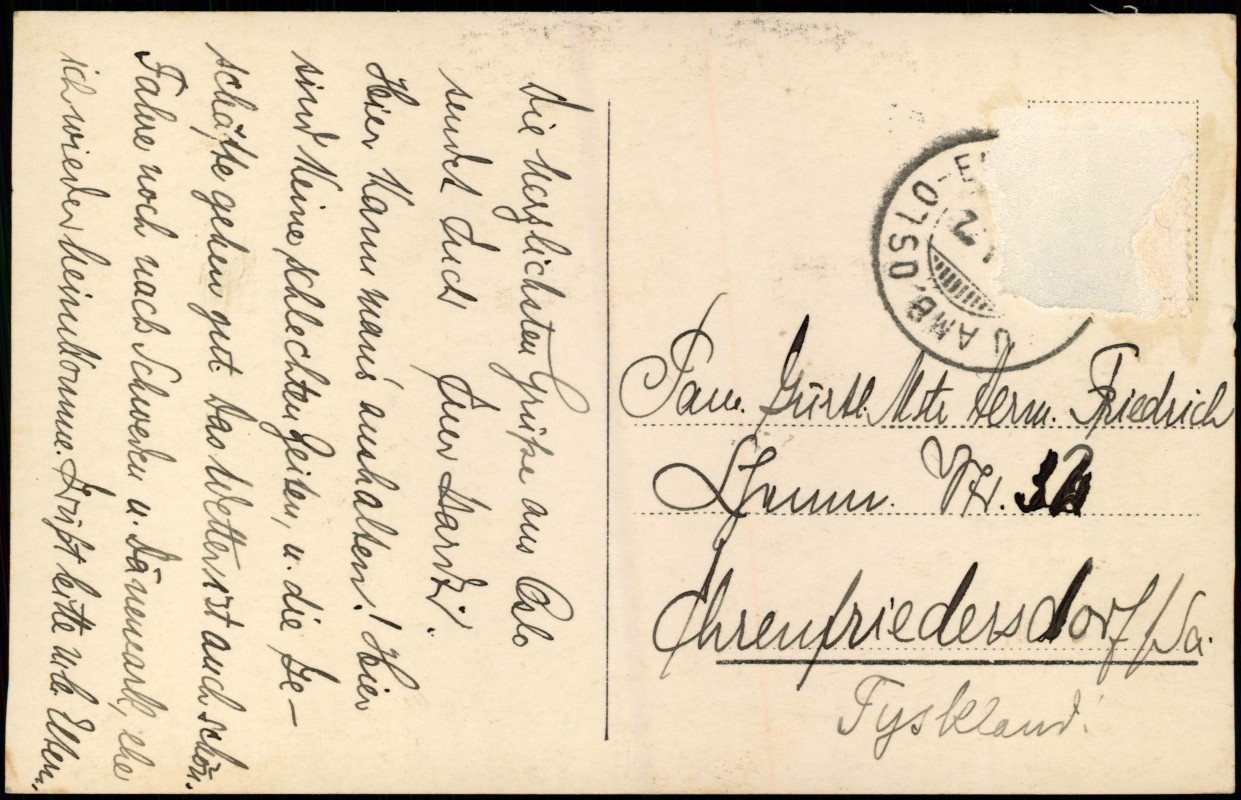 Die herzlichsten Grüße aus Oslo
sendet Euch Euer
Hier kann mans aushalten! Hier
sind keine schlechten Zeiten, u. die Ge-
schäfte gehen gut. Das Wetter ist auch schön.
Fahre noch nach Schweden u. Dänemark, ehe
ich wieder heimkomme. Grüßt bitte m. l. Eltern.
AMB. OSLO-E
2
Fam. Gürtl. Mstr. Herm. Friedrich
Nr.
Ehrenfriedersdorf/Sa.
Tyskland.